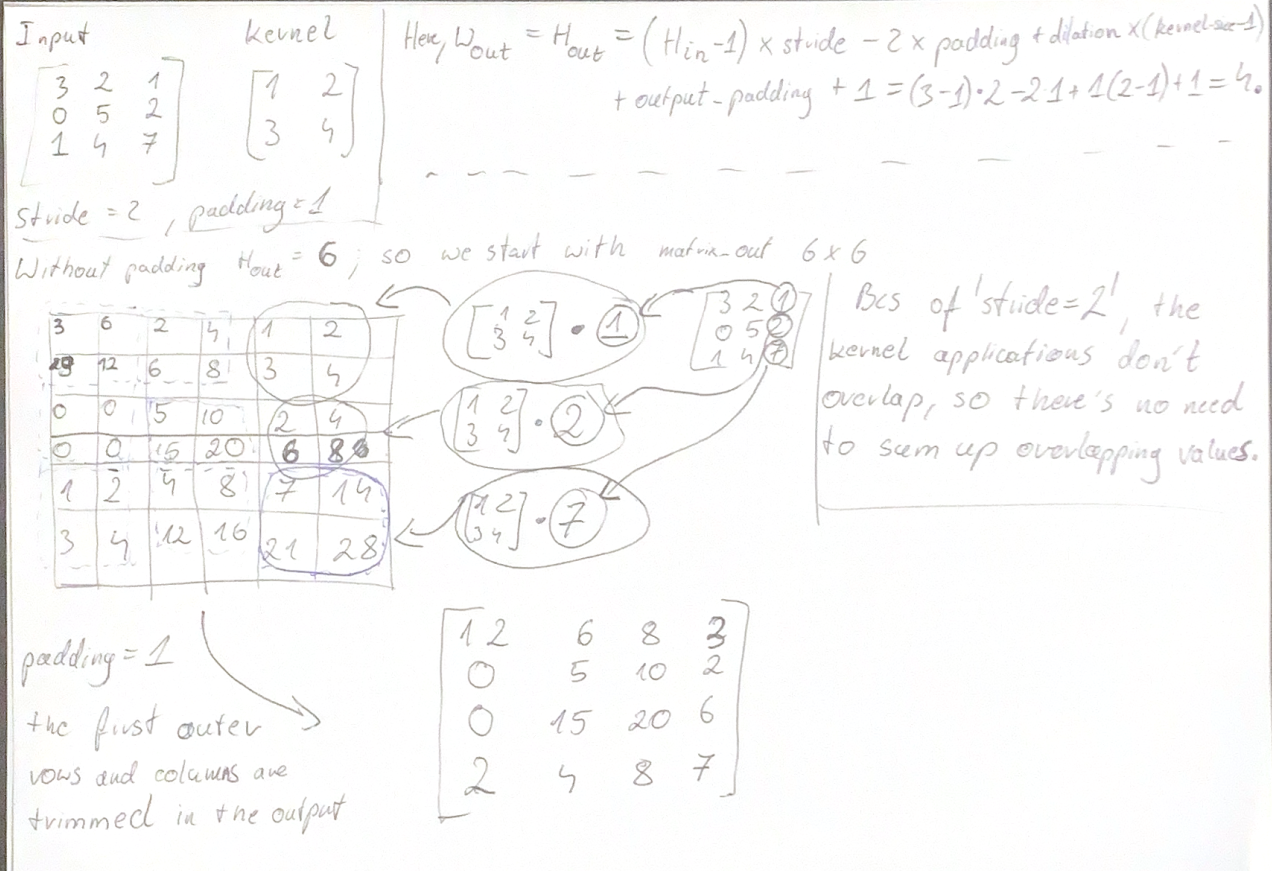 Input
kernel
3 2 1
0 5 2
1 4 7
1 2
3 4
stride = 2, padding = 1
Here, Wout = Hout = (Hin-1) × stride - 2 × padding + dilation × (kernel-size-1)
+ output-padding + 1 = (3-1)·2-2·1+1(2-1)+1=4.
Without padding Hout = 6; so we start with matrix-out 6×6
3 6 2 4 1 2
12 6 8 3 4
0 0 5 10 2 4
0 0 15 20 6 8
1 2 4 8 7 14
3 4 12 16 21 28
[1 2
3 4] · 1
[1 2
3 4] · 2
[1 2
3 4] · 7
3 2 1
0 5 2
1 4 7
Bcs of 'stride=2', the
kernel applications don't
overlap, so there's no need
to sum up overlapping values.
padding = 1
the first outer
rows and columns are
trimmed in the output
12 6 8 3
0 5 10 2
0 15 20 6
2 4 8 7